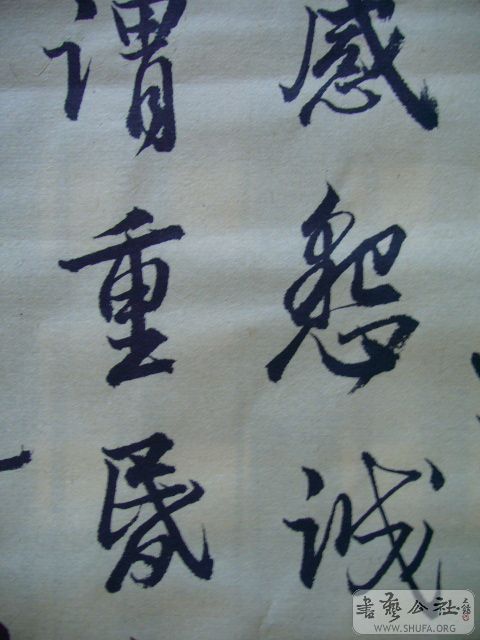 感懇誠
謂重昏
書藝公社
WWW.SHUFA.ORG